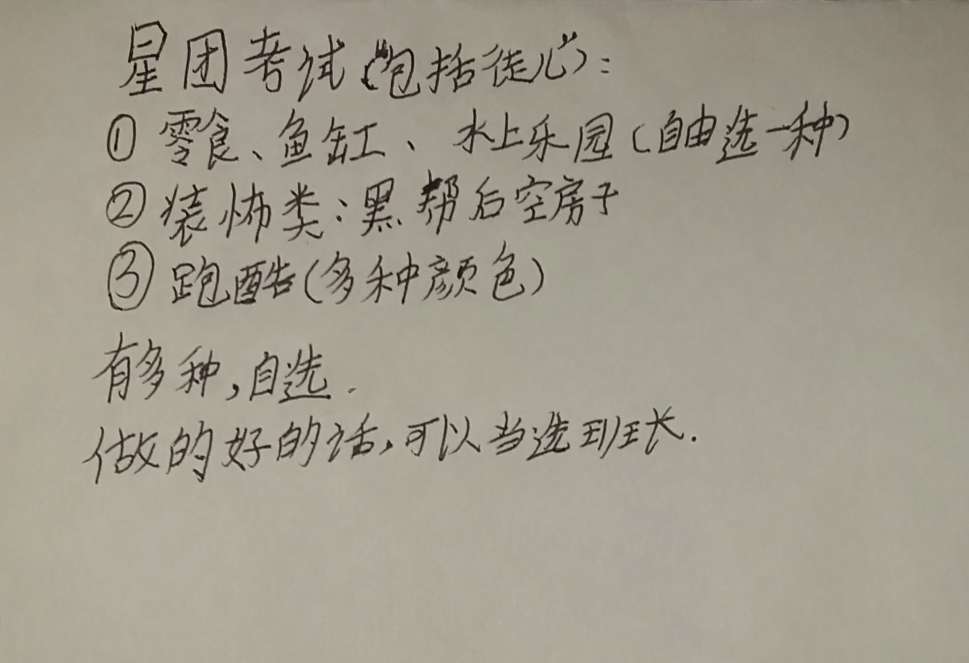 星团考试("包括徒儿"):
① 零食、鱼缸、水上乐园(自由选一种)
② 装饰类:黑帮后空房子
③ 跑酷(多种颜色)
有多种,自选.
做的好的话,可以当选班长.